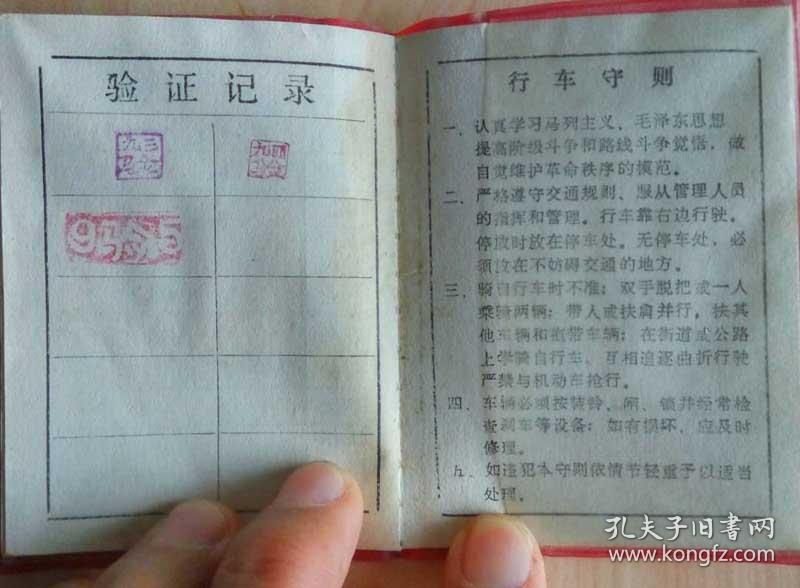 验证记录
九三
验
九四
验
9验5
行车守则
一、认真学习马列主义、毛泽东思想
提高阶级斗争和路线斗争觉悟，做
自觉维护革命秩序的模范。
二、严格遵守交通规则、服从管理人员
的指挥和管理。行车靠右边行驶。
停放时放在停车处。无停车处，必
须放在不妨碍交通的地方。
三、骑自行车时不准：双手脱把或一人
乘骑两辆；带人或扶肩并行，扶其
他车辆和拖带车辆；在街道或公路
上学骑自行车、互相追逐曲折行驶
严禁与机动车抢行。
四、车辆必须按装铃、闸、锁并经常检
查刹车等设备；如有损坏，应及时
修理。
五、如违犯本守则依情节轻重予以适当
处理。
孔夫子旧书网
www.kongfz.com